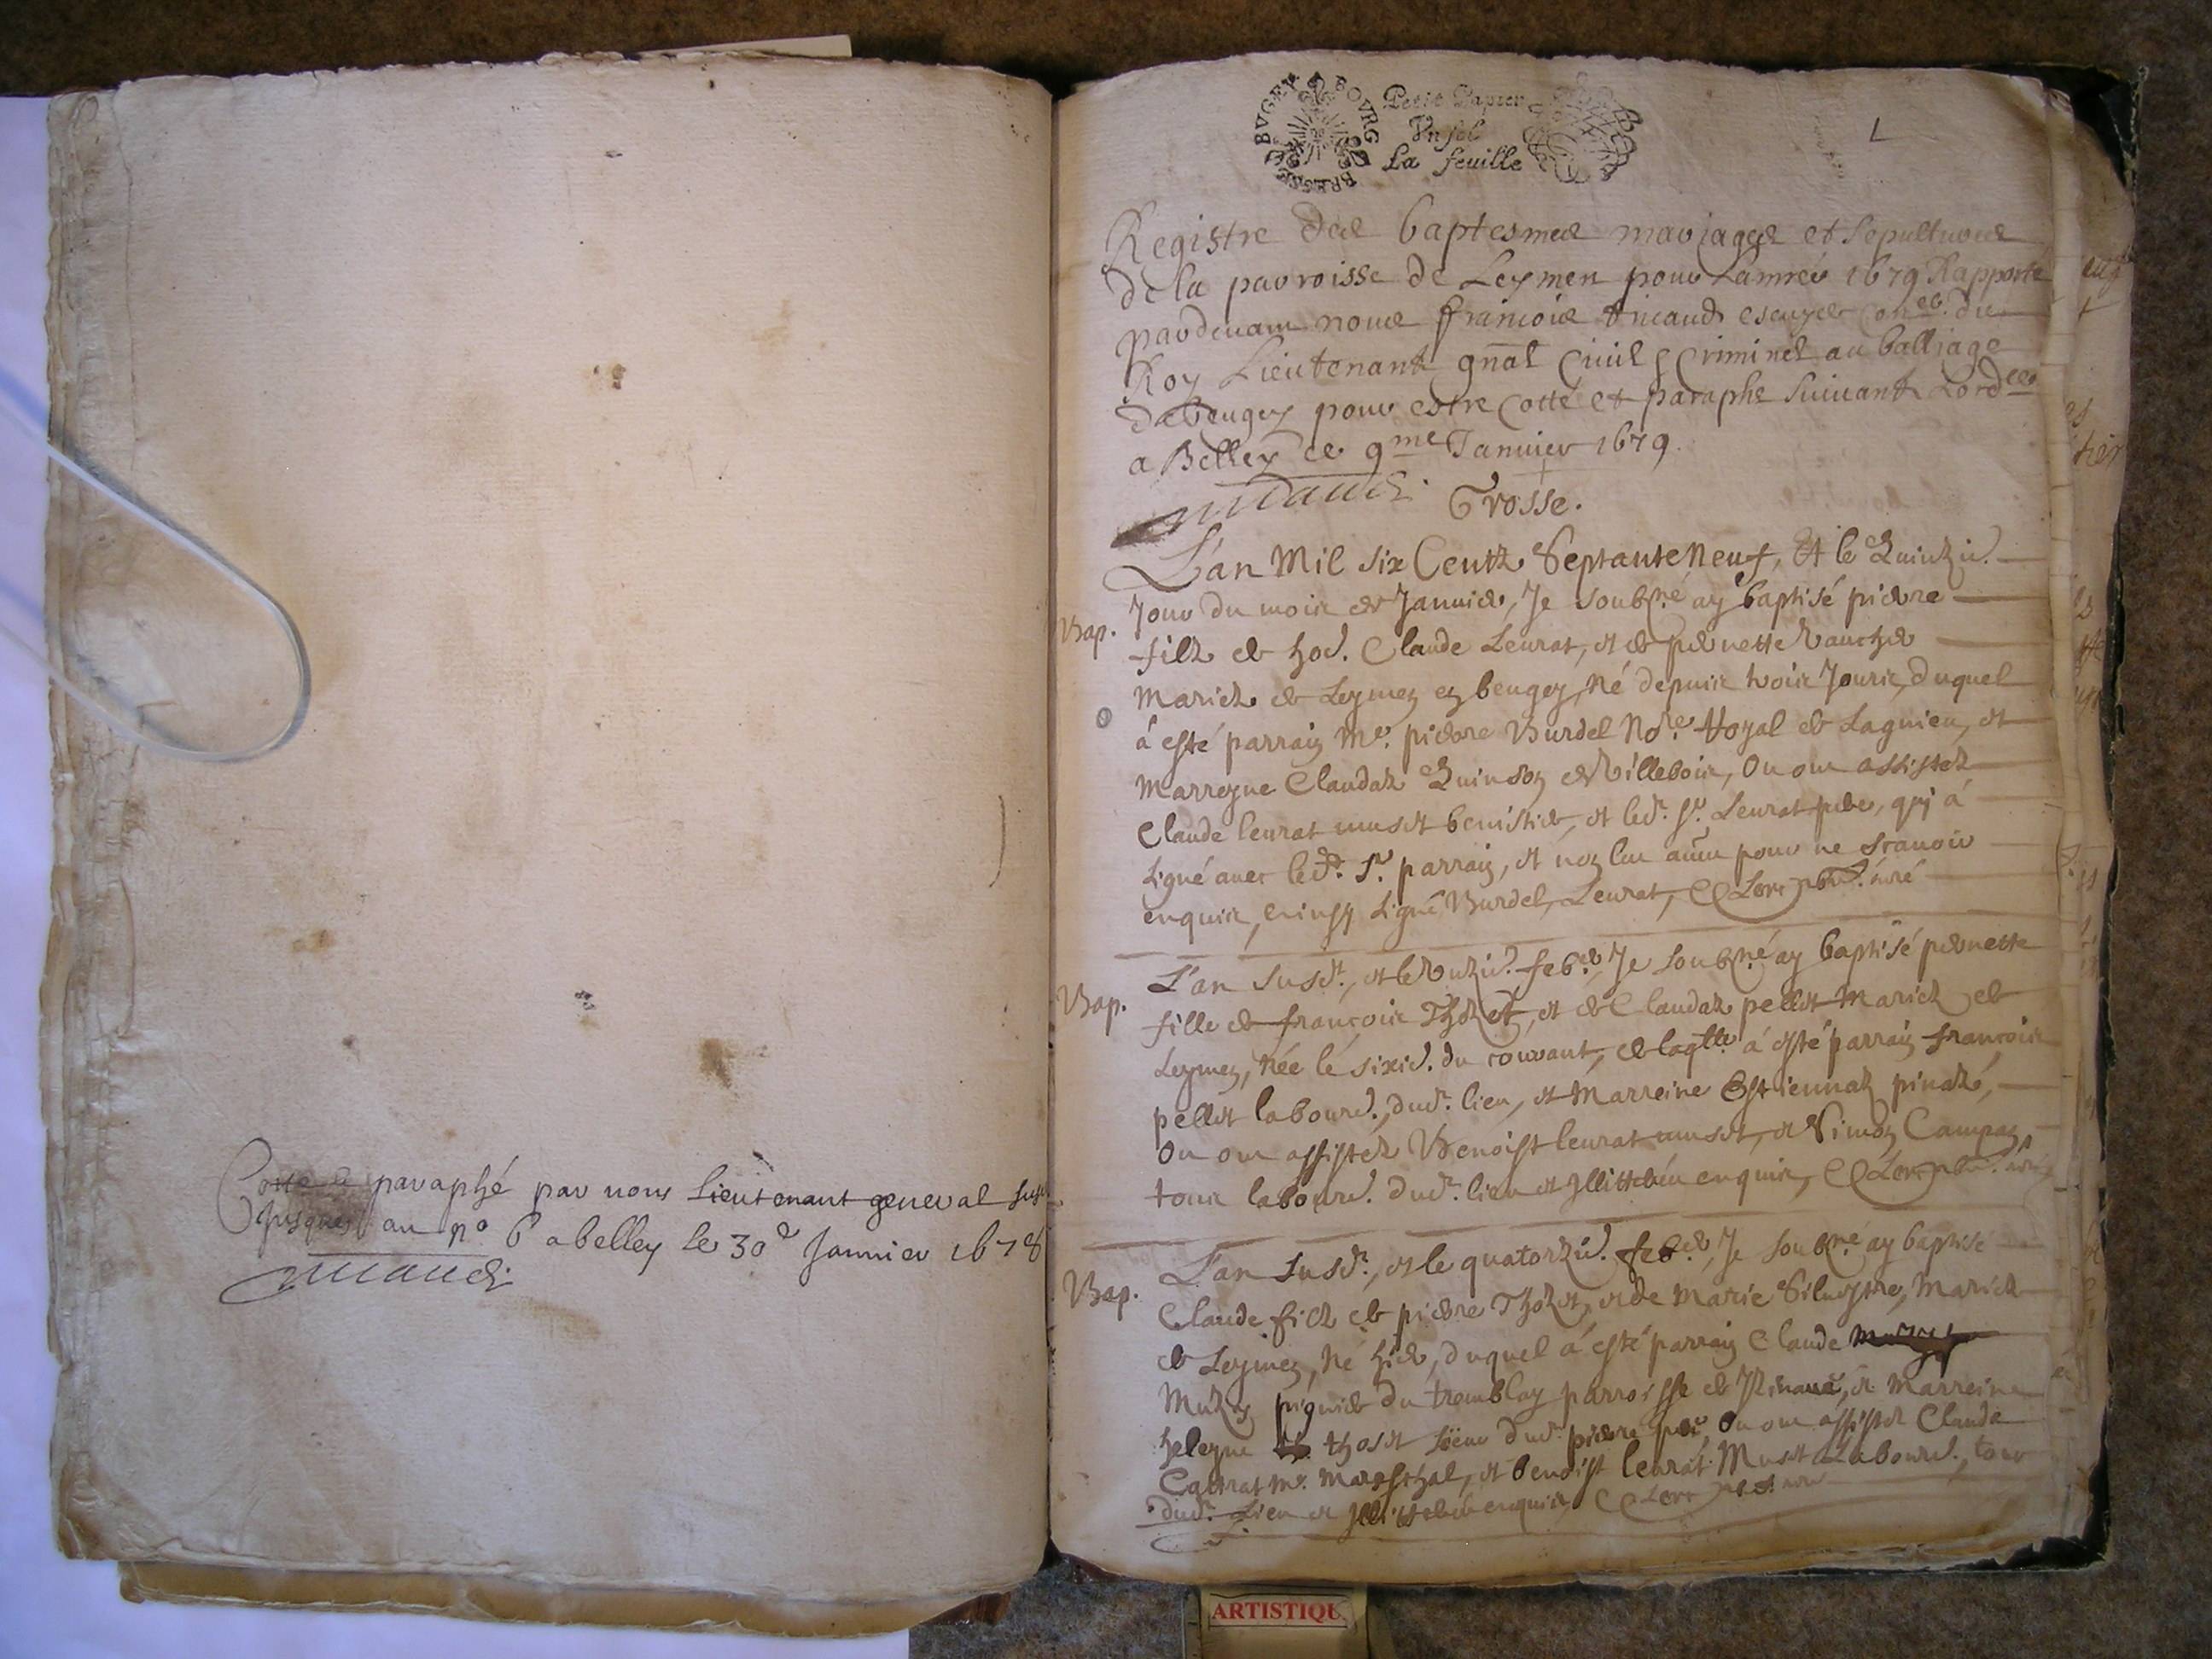 Cotté & paraphé par nous Lieutenant general sus
Jusques au n.o 6 a belley le 30e Januier 1678
BOVRG BRESSE BVGEY
Petit Papier
Vn sol
La feuille
1
Registre des baptesmes mariages et sepultures
de la parroisse de Leymen pour Lannée 1679 Rapporté
pardeuant nous françois escuyer coner du
Roy Lieutenant gnãl Ciuil & Criminel au balliage
de beugey pour estre Cotté et paraphe suiuant Lordce
a Belley ce 9me Januier 1679.
Grosse.
L'an Mil six Centz Septante neuf, Et le Quinzie.
Bap.
Jour du mois de Januier, Je soubzné ay baptisé pierre
filz de hoe. Claude Leurat, et de pernette
Mariez de Leymen en beugey, né depuis trois Jours, duquel
à esté parrain Me. pierre Burdel Nore. Royal de Lagnieu, et
Marreyne Claudaz Quinson de Villebois, Ou ont assistez
Claude leurat muset benistier, et led. sr. Leurat pere, qui à
signé auec led. Sr. parrain, et non les aues pour ne scauoir
enquis, ainsy signé Burdel, Leurat, & curé
Bap.
L'an susd., et le Unzie. feber., Je soubzné ay baptisé pernette
fille de françois Thozet, et de Claudaz pellet Mariez de
Leymen, née le sixie. du courant, de laqlle à esté parrain françois
pellet laboure., dud. lieu, et Marreine Estiennaz
Ou ont assistez Benoist leurat muset, et Simon
tous laboure. dud. lieu et Illitterés enquis, &
Bap.
L'an susd., et le quatorzie. feber., Je soubzné ay baptisé
Claude filz de pierre Thozet, et de Marie Siluestre, Mariez
de Leymen, né hier, duquel à esté parrain Claude
du tremblay parroisse de et Marreine
heleyne thoset sœur dud. pierre pere, Ou ont assistez Claude
me. Mareschal, et benoist leurat Muset Laboure., tous
dud. Lieu et Illitterés enquis, &
ARTISTIQU